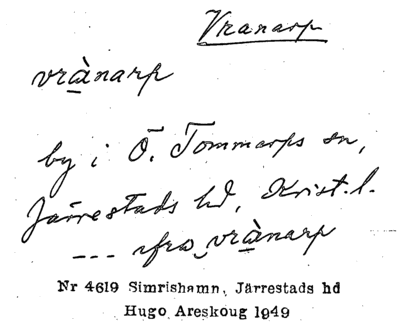 Vranarp
vrànarp
by i Ö. Tommarps sn,
Järrestads hd, Krist. l.
--- ifrå vrànarp
Nr 4619 Simrishamn, Järrestads hd
Hugo Areskoug 1949